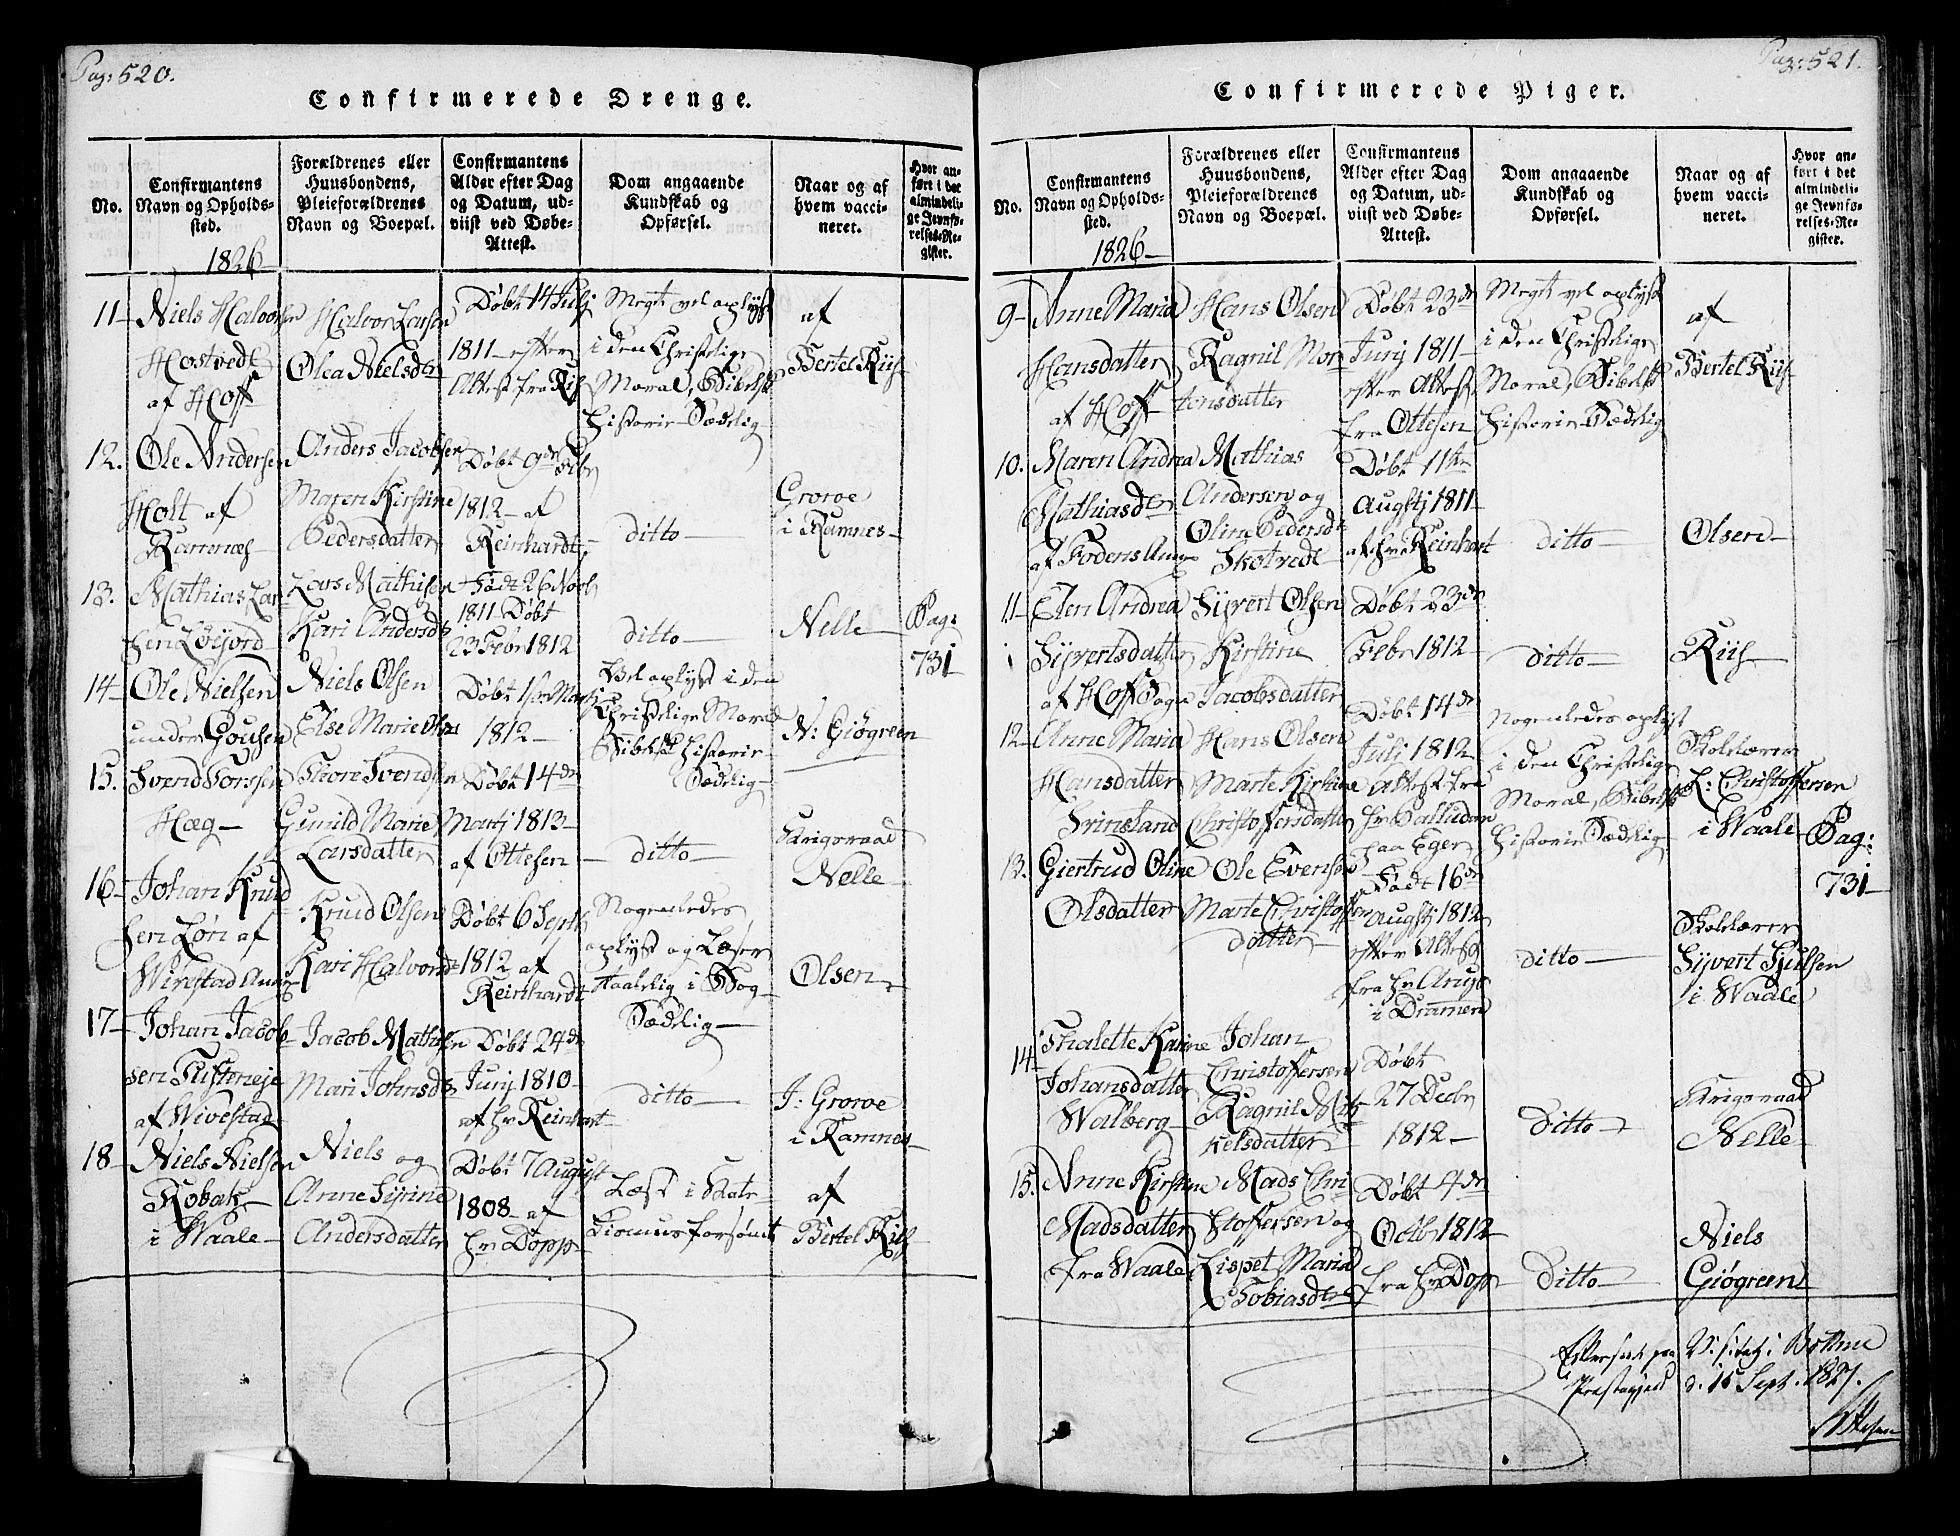 Pag: 520.
Confirmerede Drenge.
No.
Confirmantens
Navn og Opholds-
sted.
1826
Forældrenes eller
Huusbondens,
Pleieforældrenes
Navn og Boepæl.
Confirmantens
Alder efter Dag
og Datum, ud-
viist ved Døbe-
Attest.
Dom angaaende
Kundskab og
Opførsel.
Naar og af
hvem vacci-
neret.
Hvor an-
ført i det
almindeli-
ge Jevnfø-
relses-Re-
gister.
11- Niels Halvorsen
Hostvedt
af Hoff
Halvor Larsen
Olea Nielsdtr
Døbt 14 Julj
1811- efter
Attest fra Riis
Meget vel oplyst
i den Christelige
Moral, Bibelsk
Historie- Sædelig
af
Bertel Riis
12. Ole Andersen
Holt af
Ramnæs
Anders Jacobsen
Maren Kirstine
Pedersdatter
Døbt 9de Febr
1812- af
Reinhardt-
ditto-
Groroe
i Ramnes-
13. Mathias Lar-
sen Løijord
Lars Mathisen
Kari Andersdtr
Født 26 Novb
1811- Døbt
23 Febr 1812
ditto-
Nelle-
Pag:
731
14- Ole Nielsen
under Gousen
Niels Olsen
Else Marie Olsdtr
Døbt 1ste Martj
1812-
Vel oplyst i den
Christelige Moral
Bibelsk Historie-
Sædelig-
N: Giøgreen
15. Svend Torssen
Hæg-
Thore Svendsen
Gunild Marie
Larsdatter
Døbt 14de
Martj 1813-
af Ottesen
ditto-
Krigsraad
Nelle-
16- Johan Knud
sen Løri af
Winstad Annex
Knud Olsen
Kari Halvordtr
Døbt 6 Septb
1812 af
Reinhardt
Nogenledes
oplyst og Læser
Taalelig i Bog-
Sædelig-
Olsen,
17- Johan Jacob-
sen Tufteneje
af Wivestad
Jacob Mathisen
Mari Johnsdtr
Døbt 24de
Junj 1810-
af Hr Reinhart
ditto-
J: Groroe
i Ramnes-
18- Niels Nielsen
Robak-
i Waale-
Niels og
Anne Sirine
Andersdatter
Døbt 7 August
1808- af
Hr Dopp
Læst i Kate-
kismus forsømt
af
Bertel Riis
Pag: 521.
Confirmerede Piger.
No.
Confirmantens
Navn og Opholds-
sted.
1826-
Forældrenes eller
Huusbondens,
Pleieforældrenes
Navn og Boepæl.
Confirmantens
Alder efter Dag
og Datum, ud-
viist ved Døbe-
Attest.
Dom angaaende
Kundskab og
Opførsel.
Naar og af
hvem vacci-
neret.
Hvor an-
ført i det
almindeli-
ge Jevnfø-
relses-Re-
gister.
9- Anne Maria
Hansdatter
af Hoff
Hans Olsen
Ragnil Mor
tensdatter
Døbt 23de
Junj 1811-
efter Attest
fra Ottesen
Meget vel oplyst
i den Christelige
Moral, Bibelsk
Historie- Sædelig
af
Bertel Riis
10. Maren Andrea
Mathiasdtr
af Fodens Annex
Mathias
Andersen og
Oline Pedersdtr
Skotvedt
Døbt 11te
Augstj 1811-
af Hr Reinhart
ditto-
Olsen-
11- Elen Andrea
Sijvertsdatter
af Hoff Sogn
Sijvert Olsen
Kirstine
Jacobsdatter
Døbt 23de
Febr 1812-
ditto-
Riis-
12- Anne Maria
Hansdatter
Svinsland
Hans Olsen
Marte Kirstine
Christoffersdatter
Døbt 14de
Julj 1812
Attest fra
Hr Palludan
paa Eger
Nogenledes oplyst
i den Christelige
Moral, Bibelsk
Historie Sædelig
Skolelærer
L: Christoffersen
i Waale-
13. Giertrud Oline
Olsdatter
Ole Evensen
Marte Christoffers
datter-
Født 16de
Augstj 1812
efter Attest
fra Hr Arup
i Drammen
ditto-
Skolelærer
Sijvert Sjulsen
i Waale
Pag:
731-
14. Thalette Karine
Johansdatter
Walberg-
Johan
Christoffersen
Ragnil Mik
kelsdatter
Døbt
27 Decbr
1812-
Ditto-
Krigsraad
Nelle-
15. Anne Kirstine
Madsdatter
fra Waale
Mads Chri-
stoffersen og
Lispet Maria
Tobiasdtr
Døbt 4de
Octb 1812-
fra Hr Dopp
Ditto-
Niels
Giøgreen
Efterseet paa Visitatz i Bottne
Præstegjeld d. 15 Sept. 1827.